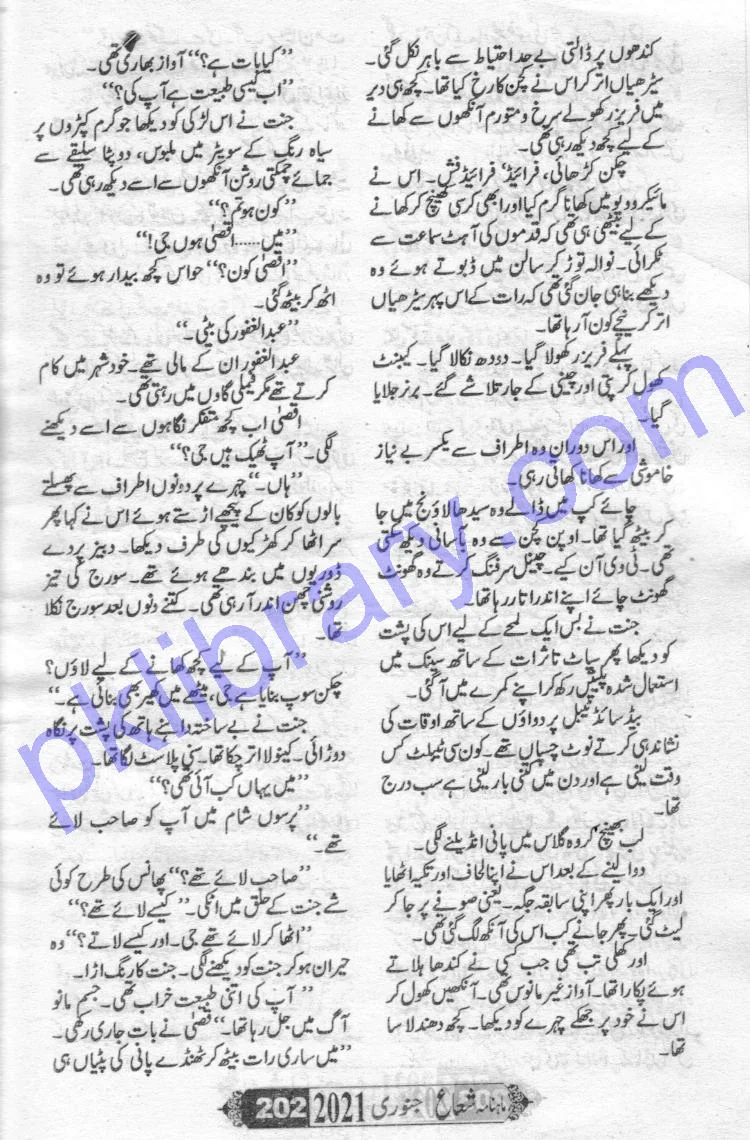 کندھوں پر ڈالتی بے حد احتیاط سے باہر نکل گئی۔
سیڑھیاں اتر کر اس نے کچن کا رخ کیا تھا۔ کچھ ہی دیر
میں فریزر کھولے سرخ و متورم آنکھوں سے کھانے
کے لیے کچھ دیکھ رہی تھی۔
چکن کڑھائی، فرائیڈ' فرائیڈ فش۔ اس نے
مائیکرو ویو میں کھانا گرم کیا اور ابھی کرسی کھینچ کر کھانے
کے لیے بیٹھی ہی تھی کہ قدموں کی آہٹ سماعت سے
ٹکرائی۔ نوالہ توڑ کر سالن میں ڈبوتے ہوئے وہ
دیکھے بنا ہی جان گئی تھی کہ رات کے اس پہر سیڑھیاں
اتر کر نیچے کون آ رہا تھا۔
پہلے فریزر کھولا گیا۔ دودھ نکالا گیا۔ کیبنٹ
کھول کر پتی اور چینی کے جار تلاشے گئے۔ برنر جلایا
گیا۔
اور اس دوران وہ اطراف سے یکسر بے نیاز
خاموشی سے کھانا کھاتی رہی۔
چائے کپ میں ڈالے وہ سیدھا لاؤنج میں جا
کر بیٹھ گیا تھا۔ اوپن کچن سے وہ بآسانی دیکھ سکتی
تھی۔ ٹی وی آن کیے۔ چینل سرفنگ کرتے وہ گھونٹ
گھونٹ چائے اپنے اندر اتار رہا تھا۔
جنت نے بس ایک لمحے کے لیے اس کی پشت
کو دیکھا پھر سپاٹ تاثرات کے ساتھ سینک میں
استعمال شدہ پلیٹیں رکھ کر اپنے کمرے میں آ گئی۔
بیڈ سائڈ ٹیبل پر دواؤں کے ساتھ اوقات کی
نشاندہی کرتے نوٹ چسپاں تھے۔ کون سی ٹیبلٹ کس
وقت لینی ہے اور دن میں کتنی بار لینی ہے سب درج
تھا۔
لب بھینچ کر وہ گلاس میں پانی انڈیلنے لگی۔
دوا لینے کے بعد اس نے اپنا لحاف اور تکیہ اٹھایا
اور ایک بار پھر اپنی سابقہ جگہ۔ یعنی صوفے پر جا کر
لیٹ گئی۔ پھر جانے کب اس کی آنکھ لگ گئی تھی۔
اور کھلی تب تھی جب کسی نے کندھا ہلاتے
ہوئے پکارا تھا۔ آواز غیر مانوس تھی۔ آنکھیں کھول کر
اس نے خود پر جھکے چہرے کو دیکھا۔ کچھ دھندلا سا
تھا۔
"کیا بات ہے؟" آواز بھاری تھی۔
"اب کیسی طبیعت ہے آپ کی؟"
جنت نے اس لڑکی کو دیکھا جو گرم کپڑوں پر
سیاہ رنگ کے سویٹر میں ملبوس، دوپٹا سلیقے سے
جمائے چمکتی روشن آنکھوں سے اسے دیکھ رہی تھی۔
"کون ہو تم؟"
"میں......اقصیٰ ہوں جی!"
"اقصیٰ کون؟" حواس کچھ بیدار ہوئے تو وہ
اٹھ کر بیٹھ گئی۔
"عبدالغفور کی بیٹی۔"
عبدالغفور ان کے مالی تھے۔ خود شہر میں کام
کرتے تھے مگر فیملی گاؤں میں رہتی تھی۔
اقصیٰ اب کچھ متفکر نگاہوں سے اسے دیکھنے
لگی۔ "آپ ٹھیک ہیں جی؟"
"ہاں۔" چہرے پر دونوں اطراف سے پھسلتے
بالوں کو کان کے پیچھے اڑستے ہوئے اس نے کہا پھر
سر اٹھا کر کھڑکیوں کی طرف دیکھا۔ دبیز پردے
ڈوریوں میں بندھے ہوئے تھے۔ سورج کی تیز
روشنی چھن اندر آ رہی تھی۔ کتنے دنوں بعد سورج نکلا
تھا۔
"آپ کے لیے کچھ کھانے کے لیے لاؤں؟
چکن سوپ بنایا ہے جی، میٹھے میں کھیر بھی بنائی ہے۔"
جنت نے بے ساختہ داہنے ہاتھ کی پشت پر نگاہ
دوڑائی۔ کینولا اتر چکا تھا۔ سنی پلاسٹ لگا تھا۔
"میں یہاں کب آئی تھی؟"
"پرسوں شام میں آپ کو صاحب لائے
تھے۔"
"صاحب لائے تھے؟" پھانس کی طرح کوئی
شے جنت کے حلق میں اٹکی۔ "کیسے لائے تھے؟"
"اٹھا کر لائے تھے جی۔ اور کیسے لاتے؟" وہ
حیران ہو کر جنت کو دیکھنے لگی۔ جنت کا رنگ اڑا۔
"آپ کی اتنی طبیعت خراب تھی۔ جسم مانو
آگ میں جل رہا تھا۔" اقصیٰ نے بات جاری رکھی۔
"میں ساری رات بیٹھ کر ٹھنڈے پانی کی پٹیاں ہی
ماہنامہ شعاع جنوری 2021 202
pklibrary.com